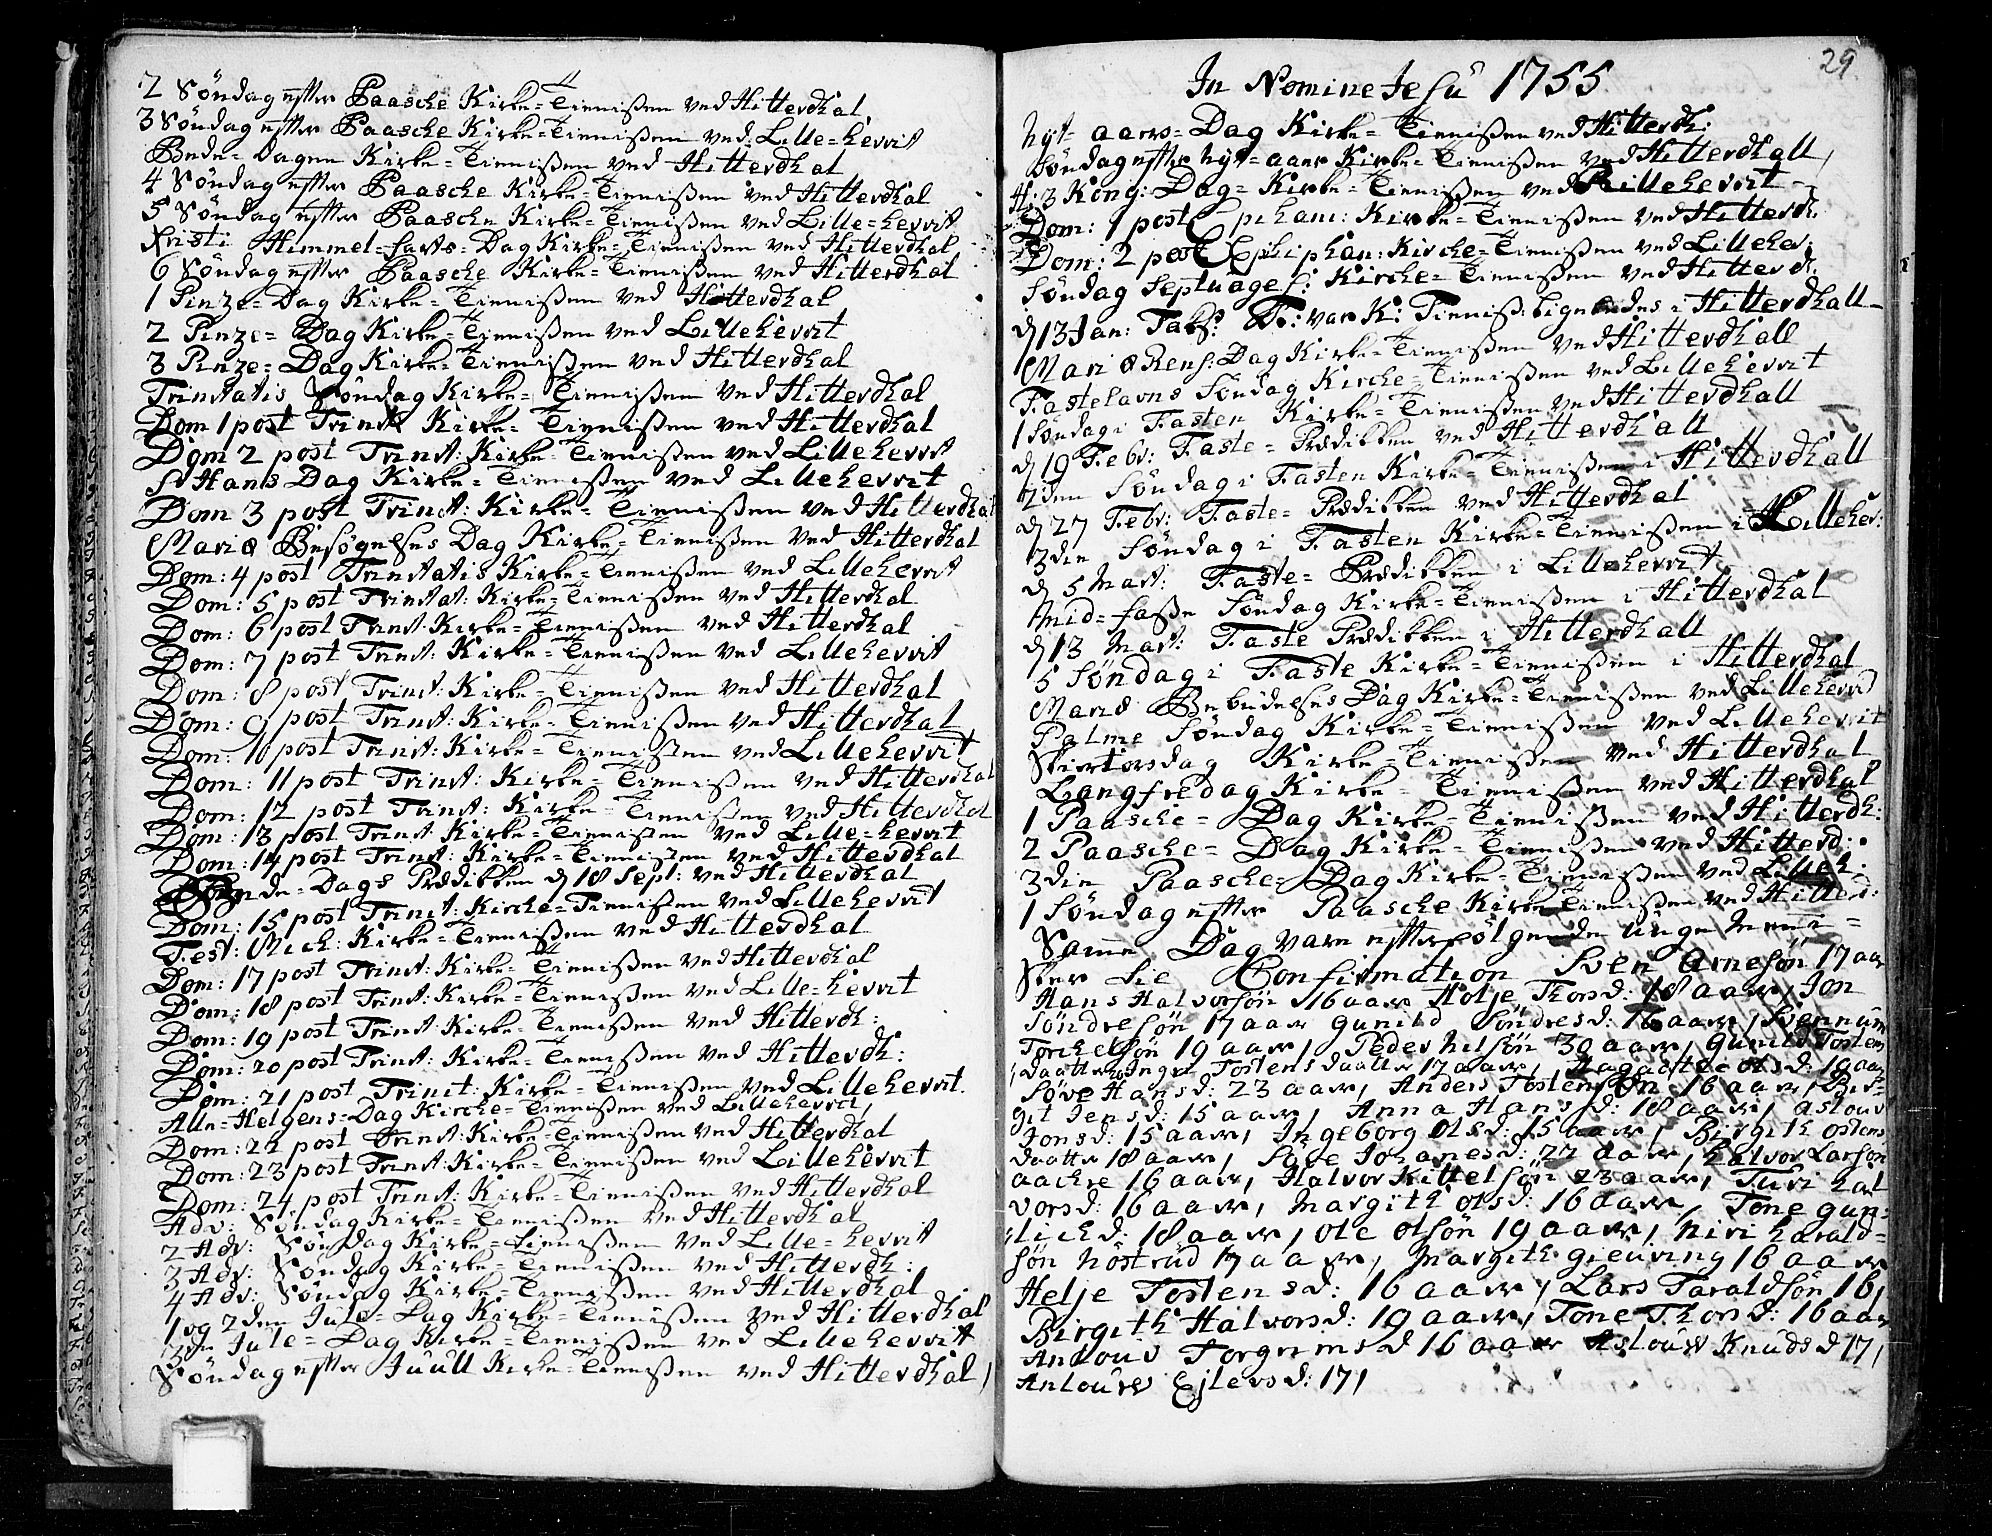 2 Søndag effter Paasche Kirke=Tienisßen ved Hitterdhal
3 Søndag effter Paasche Kirke=Tienisßen ved Lille=hervit
Bede=dagen Kirke=Tienisßen ved Hitterdhal
4 Søndag effter Paasche Kirke=Tienisßen ved Hitterdhal
5 Søndag effter Paasche Kirke=Tienisßen ved Lille=hervit
Kristi Himmel=farts=Dag Kirke=Tienisßen ved Hitterdhal
6 Søndag effter Paasche Kirke=Tienisßen ved Hitterdhal
1 Pinze=Dag Kirke=Tienisßen ved Hitterdhal
2 Pinze=Dag Kirke=Tienisßen ved Lillehervit
3 Pinze=Dag Kirke=Tienisßen ved Hitterdhal
Trinitatis Søndag Kirke=Tienisßen ved Hitterdhal
Dom 1 post Trinit: Kirke=Tienisßen ved Hitterdhal
Dom 2 post Trinit: Kirke=Tienisßen ved Lillehervit
St Hans Dag Kirke=Tienisßen ved Lillehervit
Dom 3 post Trinit: Kirke=Tienisßen ved Hitterdhal
Mariæ Besøgelses Dag Kirke=Tienisßen ved Hitterdhal
Dom: 4 post Trinitatis Kirke=Tienisßen ved Lillehervit
Dom: 5 post Trinitat: Kirke=Tienisßen ved Hitterdhal
Dom: 6 post Trinit: Kirke=Tienisßen ved Hitterdhal
Dom: 7 post Trinit: Kirke=Tienisßen ved Lillehervit
Dom: 8 post Trinit: Kirke=Tienisßen ved Hitterdhal
Dom: 9 post Trinit: Kirke=Tienisßen ved Hitterdhal
Dom: 10 post Trinit: Kirke=Tienisßen ved Lillehervit
Dom: 11 post Trinit: Kirke=Tienisßen ved Hitterdhal
Dom: 12 post Trinit: Kirke=Tienisßen ved Hitterdhal
Dom: 13 post Trinit: Kirke=Tienisßen ved Lille=hervit
Dom: 14 post Trinit: Kirke=Tienisßen ved Hitterdhal
Dags Prædikken d 18 Sept: ved Hitterdhal
Dom: 15 post Trinit: Kirche=Tienisßen ved Lillehervit
Fest: Mich: Kirke=Tienisßen ved Hitterdhal
Dom: 17 post Trinit: Kirke=Tienisßen ved Hitterdhal
Dom: 18 post Trinit: Kirke=Tienisßen ved Lille=hervit
Dom: 19 post Trinit: Kirke=Tienisßen ved Hitterdh:
Dom: 20 post Trinit: Kirke=Tienisßen ved Hitterdh:
Dom: 21 post Trinit: Kirke=Tienisßen ved Lillehervit.
Alle=Helgens=Dag Kirche=Tienisßen ved Lillehervit,
Dom: 22 post Trinit: Kirke=Tienisßen ved Hitterdhal
Dom: 23 post Trinit: Kirke=Tienisßen ved Lillehervit
Dom: 24 post Trinit: Kirke=Tienisßen ved Hitterdhal
Adv: Søndag Kirke=Tienisßen ved Hitterdhal
2 Adv: Søndag Kirke=Tienisßen ved Lille=hervit
3 Adv: Søndag Kirke=Tienisßen ved Hitterdh:
4 Adv: Søndag Kirke=Tienisßen ved Hitterdhal
1 og 2den Jule=Dag Kirke=Tienisßen ved Hitterdhal
3die Jule=Dag Kirke=Tienisßen ved Lillehervitt
Søndag effter Juull Kirke=Tienisßen ved Hitterdhal,
29
In Nomine Jesu 1755
Nyt=aars=Dag Kirke=Tienisßen ved Hitterdh:
Søndag effter Nyt=aar Kirke=Tienisßen ved Hitterdhall,
H: 3 Kong: Dag=Kirke=Tienisßen ved Lillehervit
Dom: 1 post Epihani: Kirke=Tienisßen ved Hitterdh.
Dom: 2 post Ephiphan: Kirche=Tienisßen ved Lilleher:
Søndag Septuages: Kirche=Tienisßen ved Hitterd:
d 13 Jan: var K: Tienisß: i Hitterdhall
Mariæ Rens: Dag Kirke=Tienisßen ved Hitterdhall
Fastelavns Søndag Kirche=Tienisßen ved Lillehervit
1 Søndag i Fasten Kirke=Tienisßen ved Hitterdhall
d 19 Febr: Faste=Prædikken ved Hitterdhall
2den Søndag i Fasten Kirke=Tienisßen i Hitterdhall
d 27 Febr: Faste=Prædikken ved Hitterdhal
3die Søndag i Fasten Kirke=Tienisßen i Lilleher:
d 5 Mart: Faste=Prædikken i Lillehervit
Mid=faste Søndag Kirke=Tienisßen i Hitterdhal
d 13 Mart: Faste Prædikken i Hitterdhall
5 Søndag i Faste Kirke=Tienisßen i Hitterdhal
Mariæ Bebudelses Dag Kirke=Tienisßen ved Lillehervid
Palme Søndag Kirke=Tienisßen ved Lillehervit
Skiertorsdag Kirke=Tienisßen ved Hitterdhal
Langfredag Kirke=Tienisßen ved Hitterdhal
1 Paasche=Dag Kirke=Tienisßen ved Hitterdh:
2 Paasche=Dag Kirke=Tienisßen ved Hitterd:
3die Paasche=Dag Kirke=Tienisßen ved Lilleh:
1 Søndag effter Paasche Kirke Tienisßen ved Hitterd:
Samme Dag vare effterfølgende unge Menni=
sker til Confirmation Sven Arnesøn 17 aar
Hans Halvorsøn 16 aar Holje Thorsd: 18 aar, Jon
Søndresøn 17 aar Gunild Søndresd: 16 aar, Svennum
Torchelsøn 19 aar, Peder Nilsøn 30 aar, Gunild Tostens
daatter Inger Tostensdaatter 17 aar, Aagaatte olsd: 19 aar
Søve Hansd: 23 aar, Anders Tostensøn 16 aar, Bir=
git Jensd: 15 aar, Anna Hansd: 18 aar, Aslouv
Jonsd: 15 aar, Ingeborg olsd: 15 aar, Birgith ostens
daatter 18 aar, Søve Johanesd: 22 aar, Halvor Larsøn
aachre 16 aar, Halvor Kittelsøn 23 aar, Turi Hal
vorsd: 16 aar, Margith olsd: 16 aar, Tone Gun=
lichd: 18 aar, Ole olsøn 19 aar, Niri harald=
søn Nöstrud 17 aar, Margith gieuving 16 aar
Helje Tostensd: 16 aar, Lars Taraldsøn 16,
Birgith Halvorsd: 19 aar, Tone Thorsd: 16 aar
Anlouv Torgrimsd 16 aar Aslouw Knudsd 17,
Anlouw Ejlersd: 17,